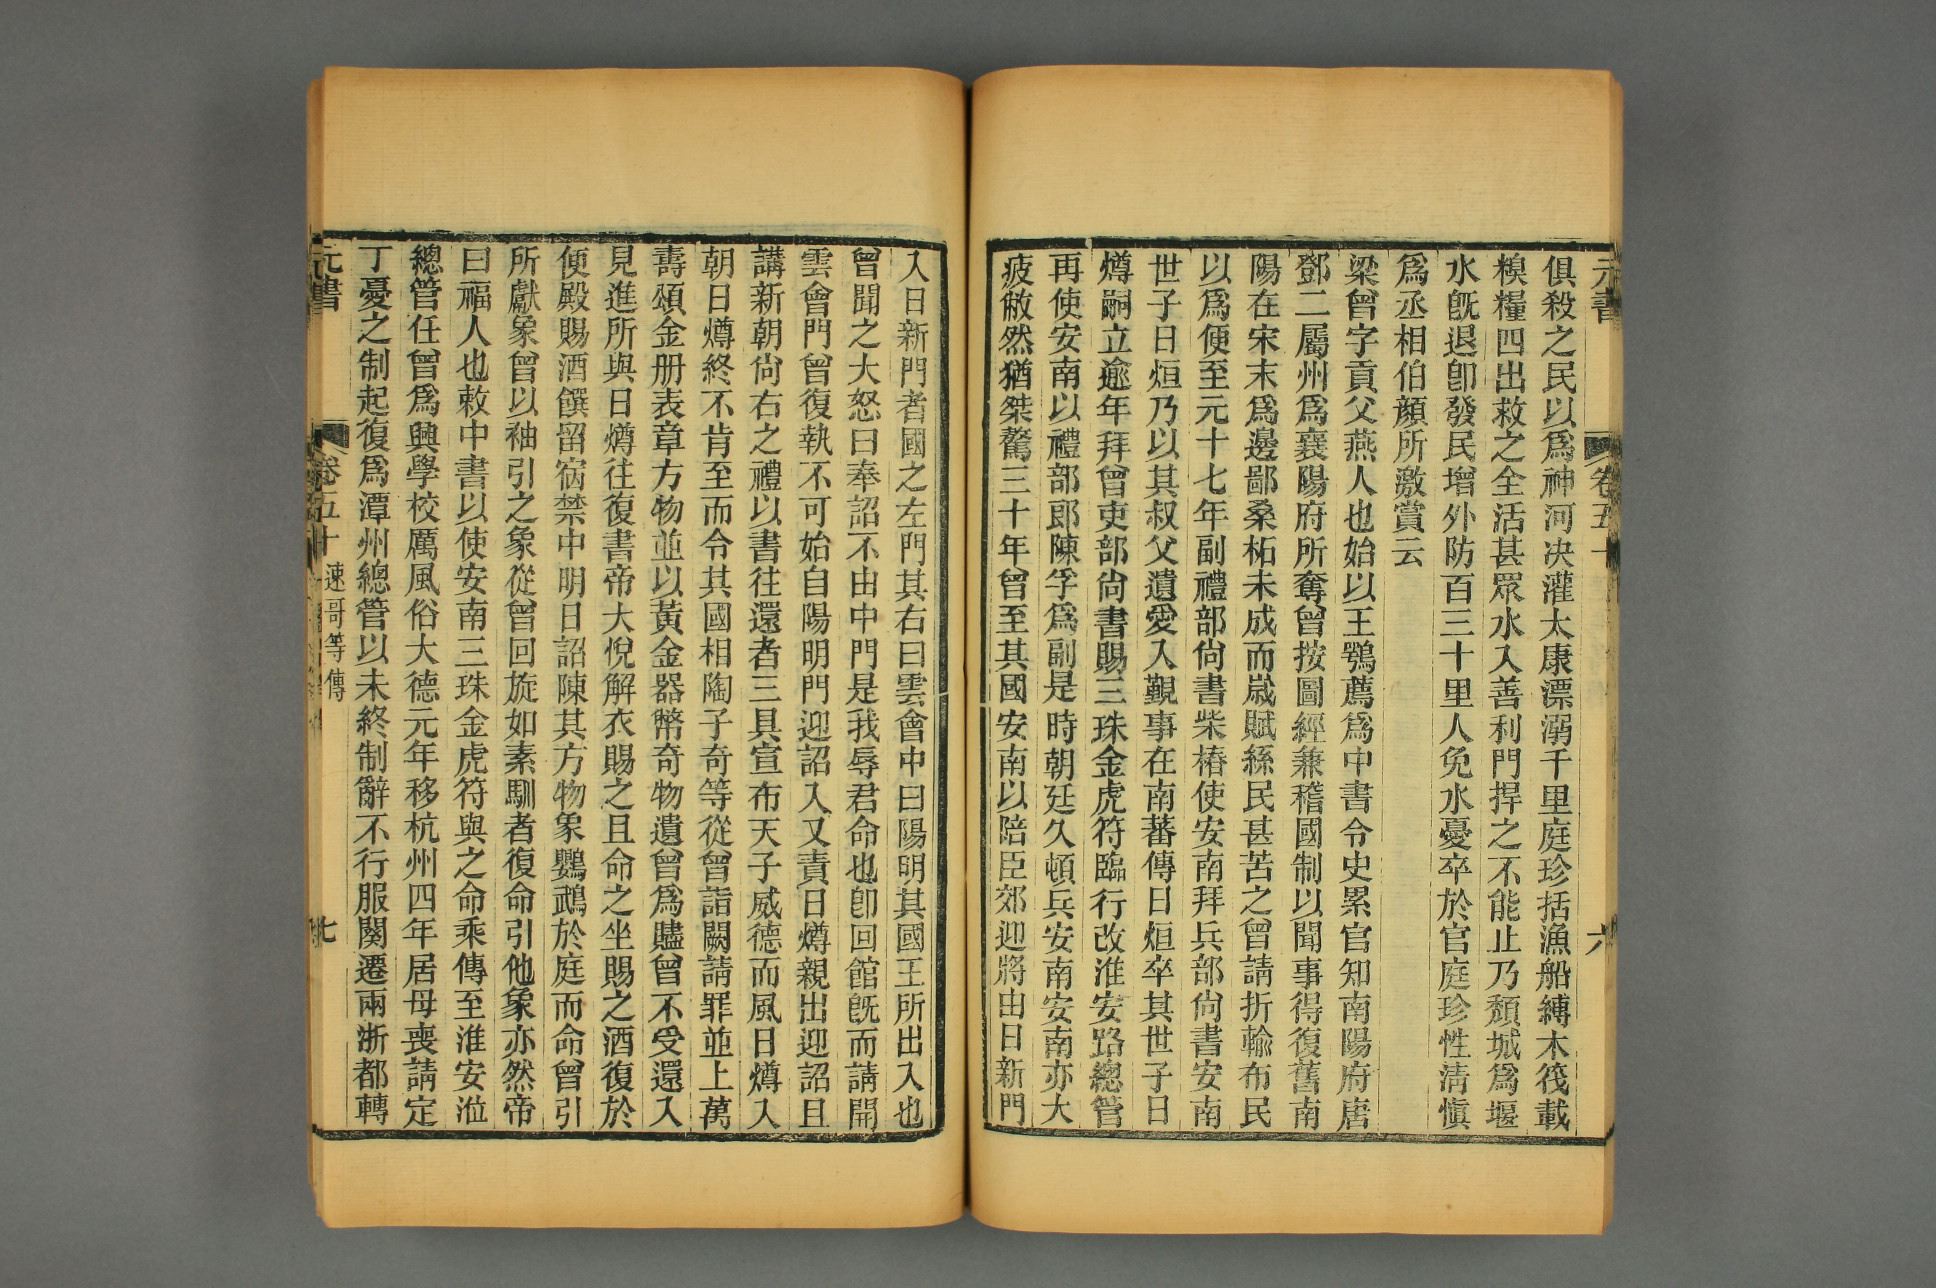 元書
卷五十
六
俱殺之民以爲神河决灌太康漂溺千里庭珍括漁船縛木筏載
糗糧四出救之全活甚眾水入善利門捍之不能止乃頹城爲堰
水旣退卽發民增外防百三十里人免水憂卒於官庭珍性淸愼
爲丞相伯顏所激賞云
梁曾字貢父燕人也始以王鶚薦爲中書令史累官知南陽府唐
鄧二屬州爲襄陽府所奪曾按圖經兼稽國制以聞事得復舊南
陽在宋末爲邊鄙桑柘未成而歲賦絲民甚苦之曾請折輸布民
以爲便至元十七年副禮部尙書柴椿使安南拜兵部尙書安南
世子日烜乃以其叔父遺愛入覲事在南蕃傳日烜卒其世子日
燇嗣立逾年拜曾吏部尙書賜三珠金虎符臨行改淮安路總管
再使安南以禮部郎陳孚爲副是時朝廷久頓兵安南安南亦大
疲敝然猶桀驁三十年曾至其國安南以陪臣郊迎將由日新門
入日新門者國之左門其右曰雲會中曰陽明其國王所出入也
曾聞之大怒曰奉詔不由中門是我辱君命也卽回館旣而請開
雲會門曾復執不可始自陽明門迎詔入又責日燇親出迎詔且
講新朝尙右之禮以書往還者三具宣布天子威德而風日燇入
朝日燇終不肯至而令其國相陶子奇等從曾詣闕請罪並上萬
壽頌金册表章方物並以黃金器幣奇物遺曾爲贐曾不受還入
見進所與日燇往復書帝大悅解衣賜之且命之坐賜之酒復於
便殿賜酒饌留宿禁中明日詔陳其方物象鸚鵡於庭而命曾引
所獻象曾以袖引之象從曾回旋如素馴者復命引他象亦然帝
曰福人也敕中書以使安南三珠金虎符與之命乘傳至淮安涖
總管任曾爲興學校厲風俗大德元年移杭州四年居母喪請定
丁憂之制起復爲潭州總管以未終制辭不行服闋遷兩浙都轉
元書
卷五十
速哥等傳
七